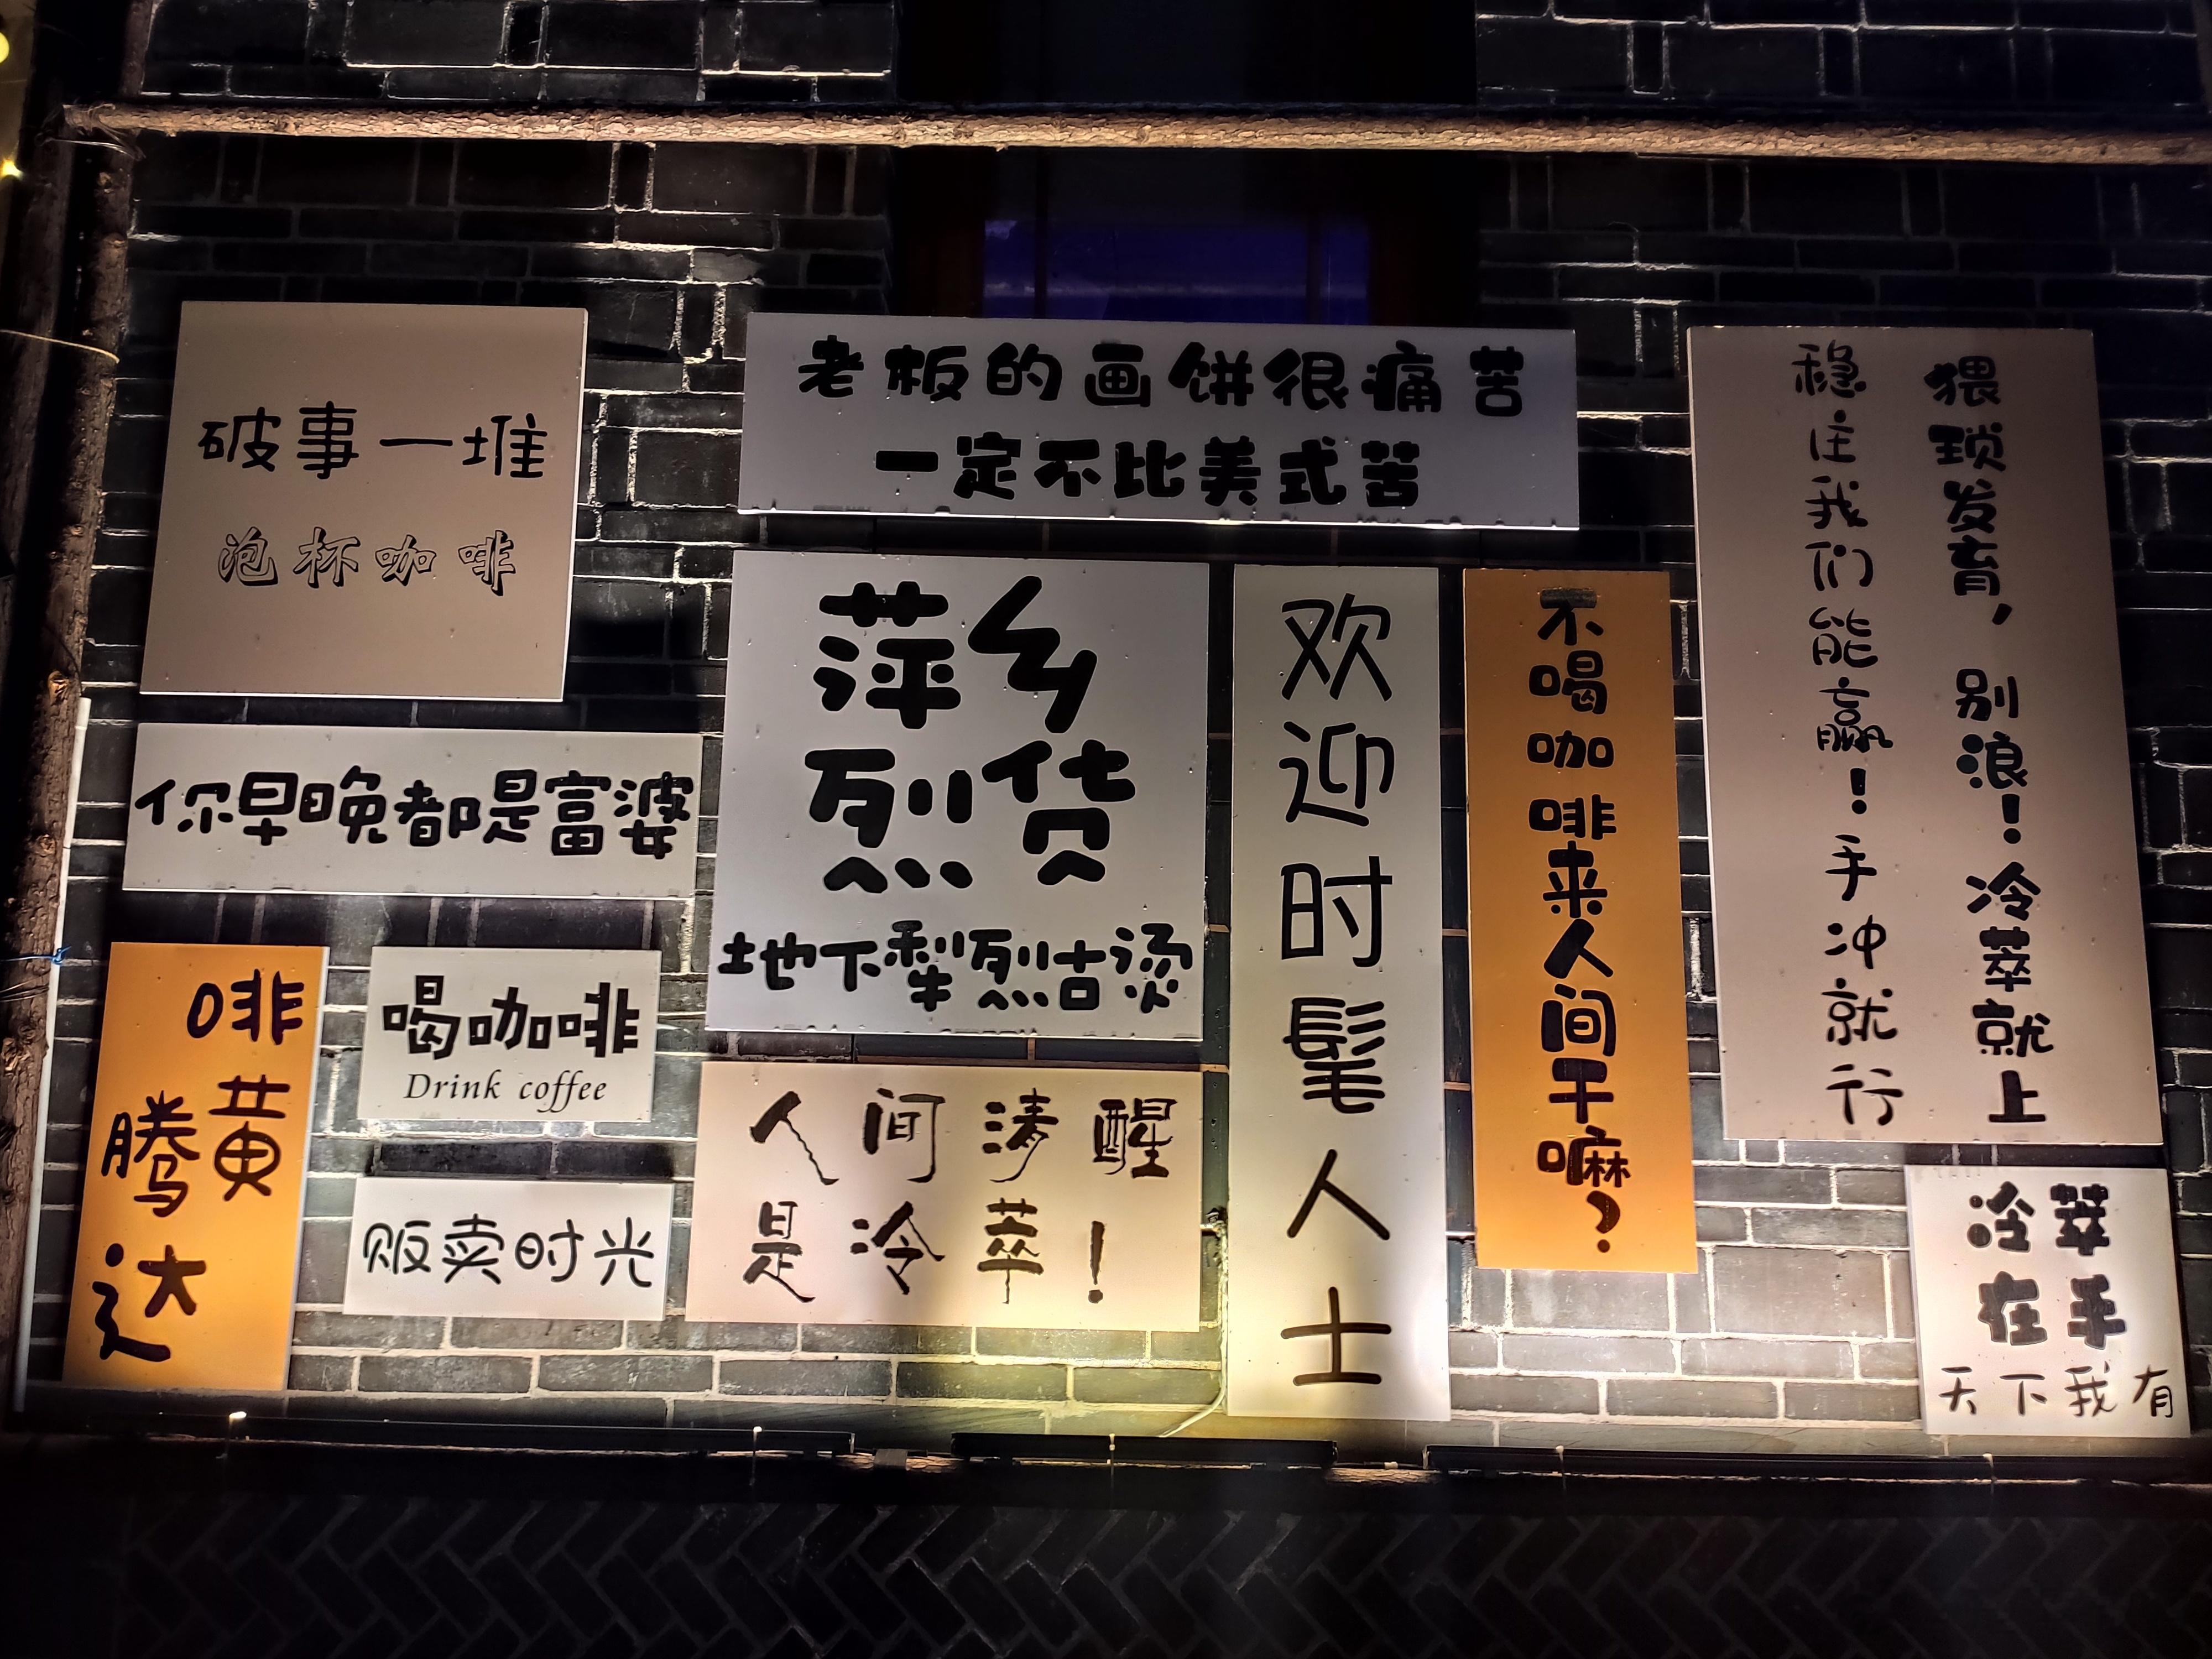 破事一堆
泡杯咖啡
老板的画饼很痛苦
一定不比美式苦
猥琐发育，别浪！冷萃就上
稳住我们能赢！手冲就行
萍乡
烈货
地下犁烈古烫
欢迎时髦人士
不喝咖啡来人间干嘛？
你早晚都是富婆
啡黄
腾达
喝咖啡
Drink coffee
贩卖时光
人间清醒
是冷萃！
冷萃
在手
天下我有